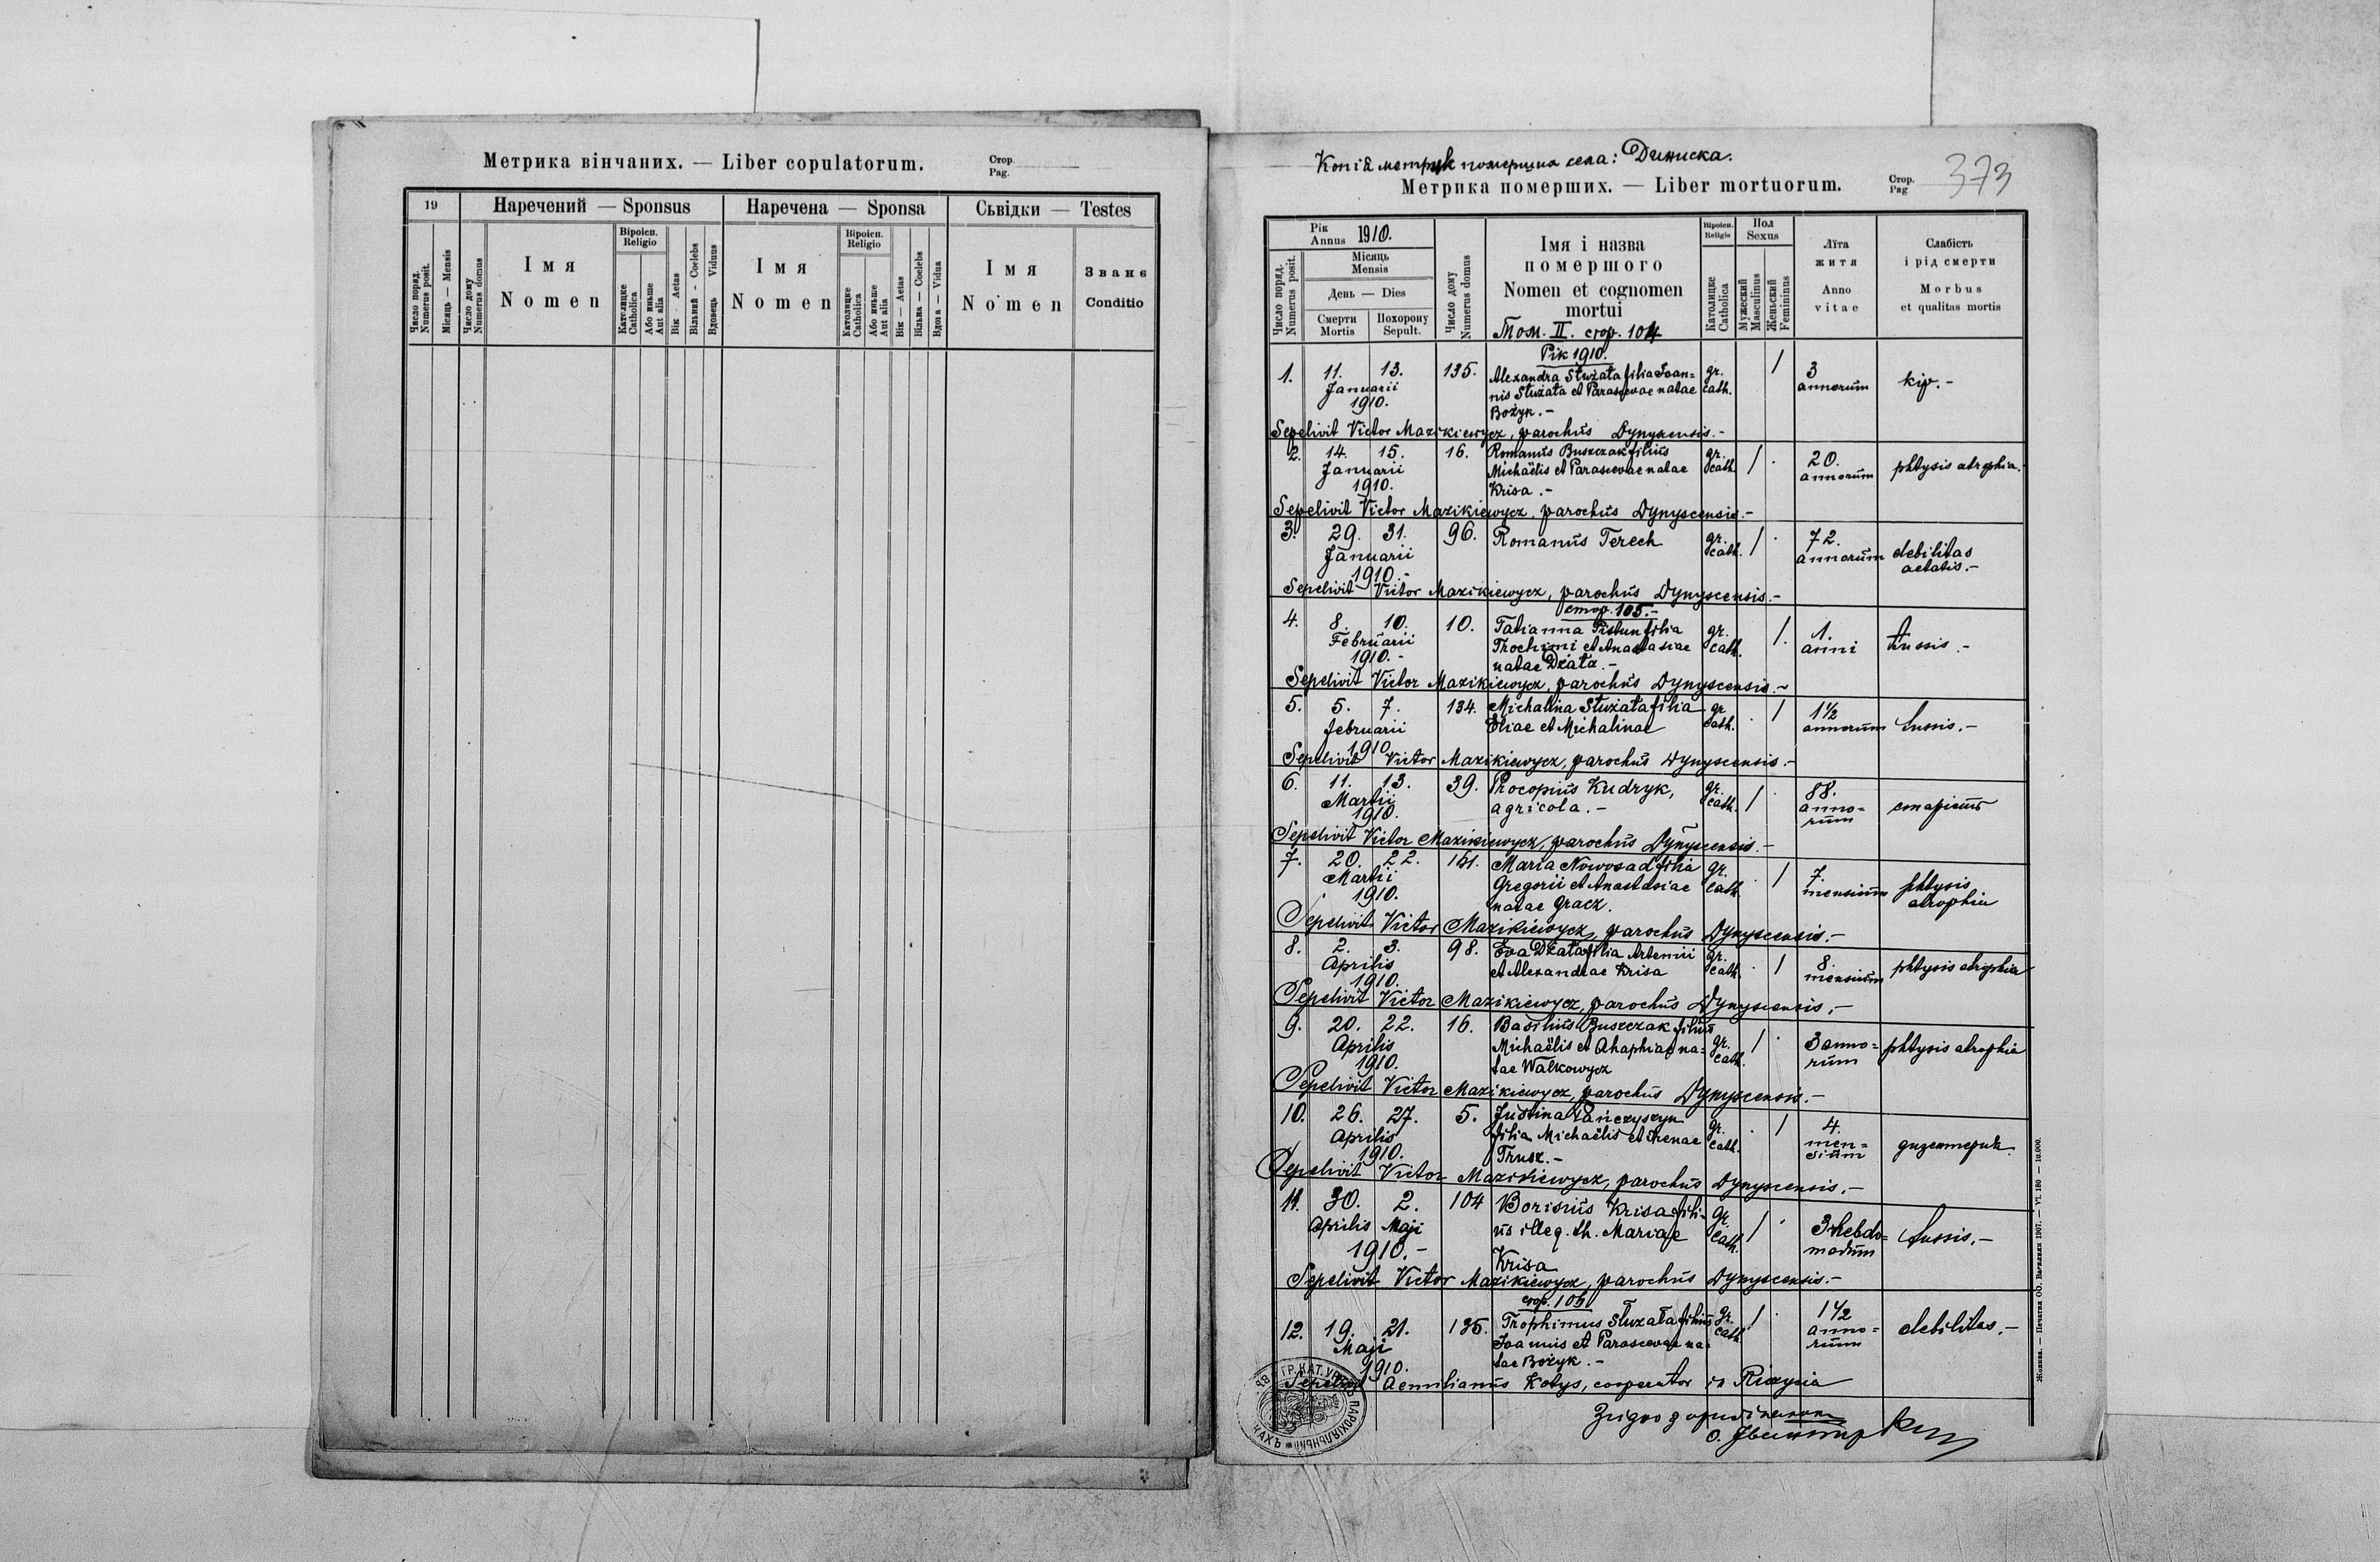 Метрика вінчаних. — Liber copulatorum.
Стор.
Pag.
19
Наречений — Sponsus
Наречена — Sponsa
Сьвідки — Testes
Число поряд.
Numerus posit.
Місяць — Mensis
Число дому
Numerus domus
Імя
Nomen
Віроісп.
Religio
Католицке
Catholica
Або иньше
Aut alia
Вік - Aetas
Вільний - Coelebs
Вдовець Viduus
Імя
Nomen
Віроісп.
Religio
Католицке
Catholica
Або иньше
Aut alia
Вік — Aetas
Вільна — Coelebs
Вдова — Vidua
Імя
Nomen
Званє
Conditio
Копія метрик померших села: Диниска.
Метрика померших. — Liber mortuorum.
Стор.
Pag
373
Рік
Annus 1910.
Число поряд.
Numerus posit.
Місяць
Mensis
День — Dies
Смерти
Mortis
Похорону
Sepult.
Число дому
Numerus domus
Імя і назва
помершого
Nomen et cognomen
mortui
Том. II. стор. 104
Віроісп.
Religio
Католицке
Catholica
Пол
Sexus
Мужеский
Masculinus
Женьский
Femininus
Лїта
житя
Anno
vitae
Слабість
і рід смерти
Morbus
et qualitas mortis
Рік 1910.
1. 11. 13. 135. Alexandra Służała filia Joan= gr. 1 3 kip.-
Januarii nis Służała et Parascevae natae cath. annorum
1910. Bożyk.-
Sepelivit Victor Mazikiewycz, parochus Dynyscensis.-
2. 14. 15. 16. Romanus Buszczak filius gr. 1 20. phtysis atrophia.-
Januarii Michaëlis et Parascevae natae cath. annorum
1910. Krisa.-
Sepelivit Victor Mazikiewycz, parochus Dynyscensis.-
3. 29. 31. 96. Romanus Terech gr. 1 72. debilitas
Januarii cath. annorum aetatis.-
1910.-
Sepelivit Victor Mazikiewycz, parochus Dynyscensis.-
стор. 105.-
4. 8. 10. 10. Tatianna Pistun filia gr. 1. 1. tussis.-
Februarii Trochimi et Anastasiae cath. anni
1910.- natae Działa.-
Sepelivit Victor Mazikiewycz, parochus Dynyscensis.-
5. 5. 7. 134. Michalina Służała filia gr. 1 1½ tussis.-
februarii Eliae et Michalinae cath. annorum
1910
Sepelivit Victor Mazikiewycz, parochus Dynyscensis.-
6. 11. 13. 39. Procopius Kudryk, gr. 1 88. старість
Martii agricola.- cath. anno=
1910. rum
Sepelivit Victor Mazikiewycz, parochus Dynyscensis.-
7. 20. 22. 151. Maria Nowosad filia gr. 1 7. phtysis
Martii Gregorii et Anastasiae cath. mensium atrophia
1910. natae Gracz.
Sepelivit Victor Mazikiewycz, parochus Dynyscensis.-
8. 2. 3. 98. Eva Działa filia Artemii gr. 1 8. phtysis atrophia
Aprilis et Alexandrae Krisa cath. mensium
1910.
Sepelivit Victor Mazikiewycz, parochus Dynyscensis.-
9. 20. 22. 16. Basilius Buszczak filius gr. 1 3 anno= phtysis atrophia
Aprilis Michaëlis et Ahaphiae na= cath. rum
1910. tae Walkowycz
Sepelivit Victor Mazikiewycz, parochus Dynyscensis.-
10. 26. 27. 5. Justina Pańczyszyn gr. 1 4. дизентерия.
Aprilis filia Michaëlis et Irenae cath. men=
1910. Trusz.- sium
Sepelivit Victor Mazikiewycz, parochus Dynyscensis.-
11. 30. 2. 104 Borisius Krisa fili- gr. 1 3 hebdo= tussis.-
Aprilis Maji us illeg. th. Mariae cath. madum
1910.- Krisa
Sepelivit Victor Mazikiewycz, parochus Dynyscensis.-
стор. 106
12. 19. 21. 135. Trophimus Służała filius gr. 1 1½ debilitas.-
Maji Joannis et Parascevae na= cath. anno=
1910. tae Bożyk.- rum
Sepelivit Aemilianus Kotys, cooperator in Rzeczyca
Згідно з
Жовква. — Печатня ОО. Василиян 1907. — VI. 180 — 10.000.